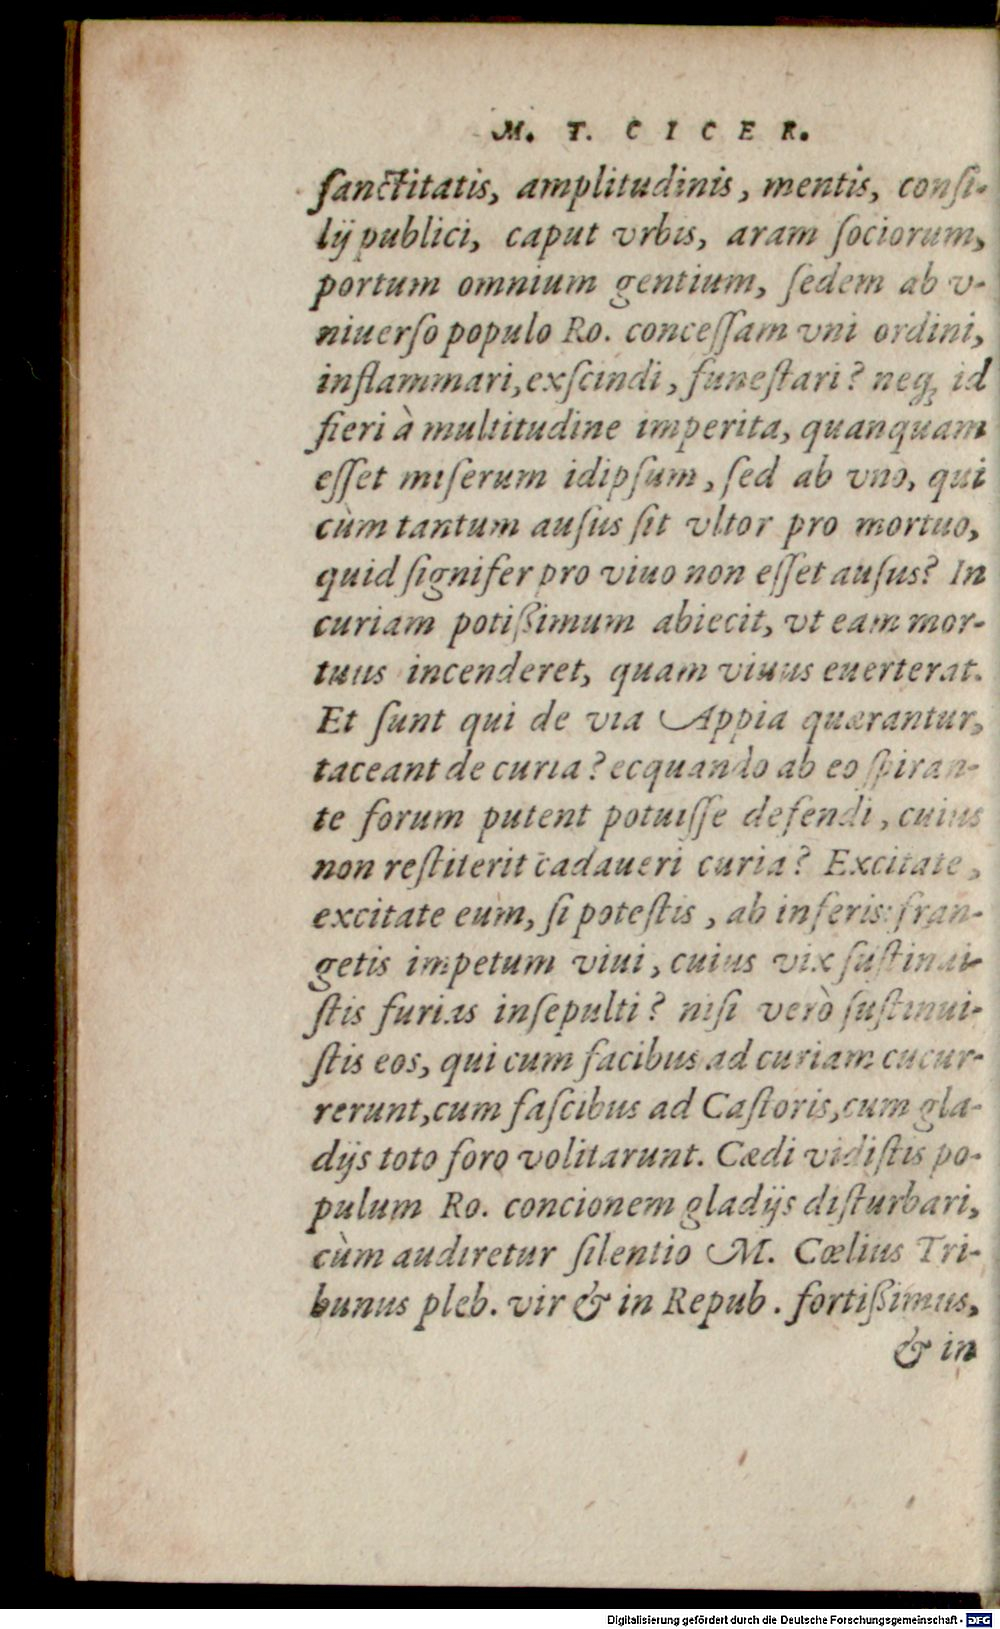 M. T. CICER.
ſanctitatis, amplitudinis, mentis, conſi-
lij publici, caput vrbis, aram ſociorum,
portum omnium gentium, ſedem ab v-
niuerſo populo Ro. conceſſam vni ordini,
inflammari, exſcindi, funeſtari? neq; id
fieri à multitudine imperita, quanquam
eſſet miſerum idipſum, ſed ab vno, qui
cùm tantum auſus ſit vltor pro mortuo,
quid ſignifer pro viuo non eſſet auſus? In
curiam potißimum abiecit, vt eam mor-
tuus incenderet, quam viuus euerterat.
Et ſunt qui de via Appia quærantur,
taceant de curia? ecquando ab eo ſpiran-
te forum putent potuiſſe defendi, cuius
non reſtiterit cadaueri curia? Excitate,
excitate eum, ſi poteſtis, ab inferis: fran-
getis impetum viui, cuius vix ſuſtinui-
ſtis furias inſepulti? niſi verò ſuſtinui-
ſtis eos, qui cum facibus ad curiam cucur-
rerunt, cum faſcibus ad Caſtoris, cum gla-
dijs toto foro volitarunt. Cædi vidiſtis po-
pulum Ro. concionem gladijs diſturbari,
cùm audiretur ſilentio M. Cœlius Tri-
bunus pleb. vir & in Repub. fortißimus,
& in
Digitalisierung gefördert durch die Deutsche Forschungsgemeinschaft - DFG